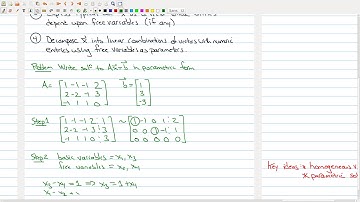 depend upon free variables (if any)
④ Decompose x⃗ into linear combinations of vectors with numeric
entries using free variables as parameters.
Problem Write solⁿ to Ax⃗=b⃗ in parametric form
A = [1 -1 -1 2
2 -2 -1 3
-1 1 1 0] b⃗ = [1
3
-3]
Step 1 [1 -1 -1 2 ¦ 1
2 -2 -1 3 ¦ 3
-1 1 1 0 ¦ -3] ~
Step 2 basic variables = x₁, x₃
free variables = x₂, x₄
x₃ - x₄ = 1 ⇒ x₃ = 1 + x₄
x₁ - x₂ +
Key ideas: homogeneous
parametric sol